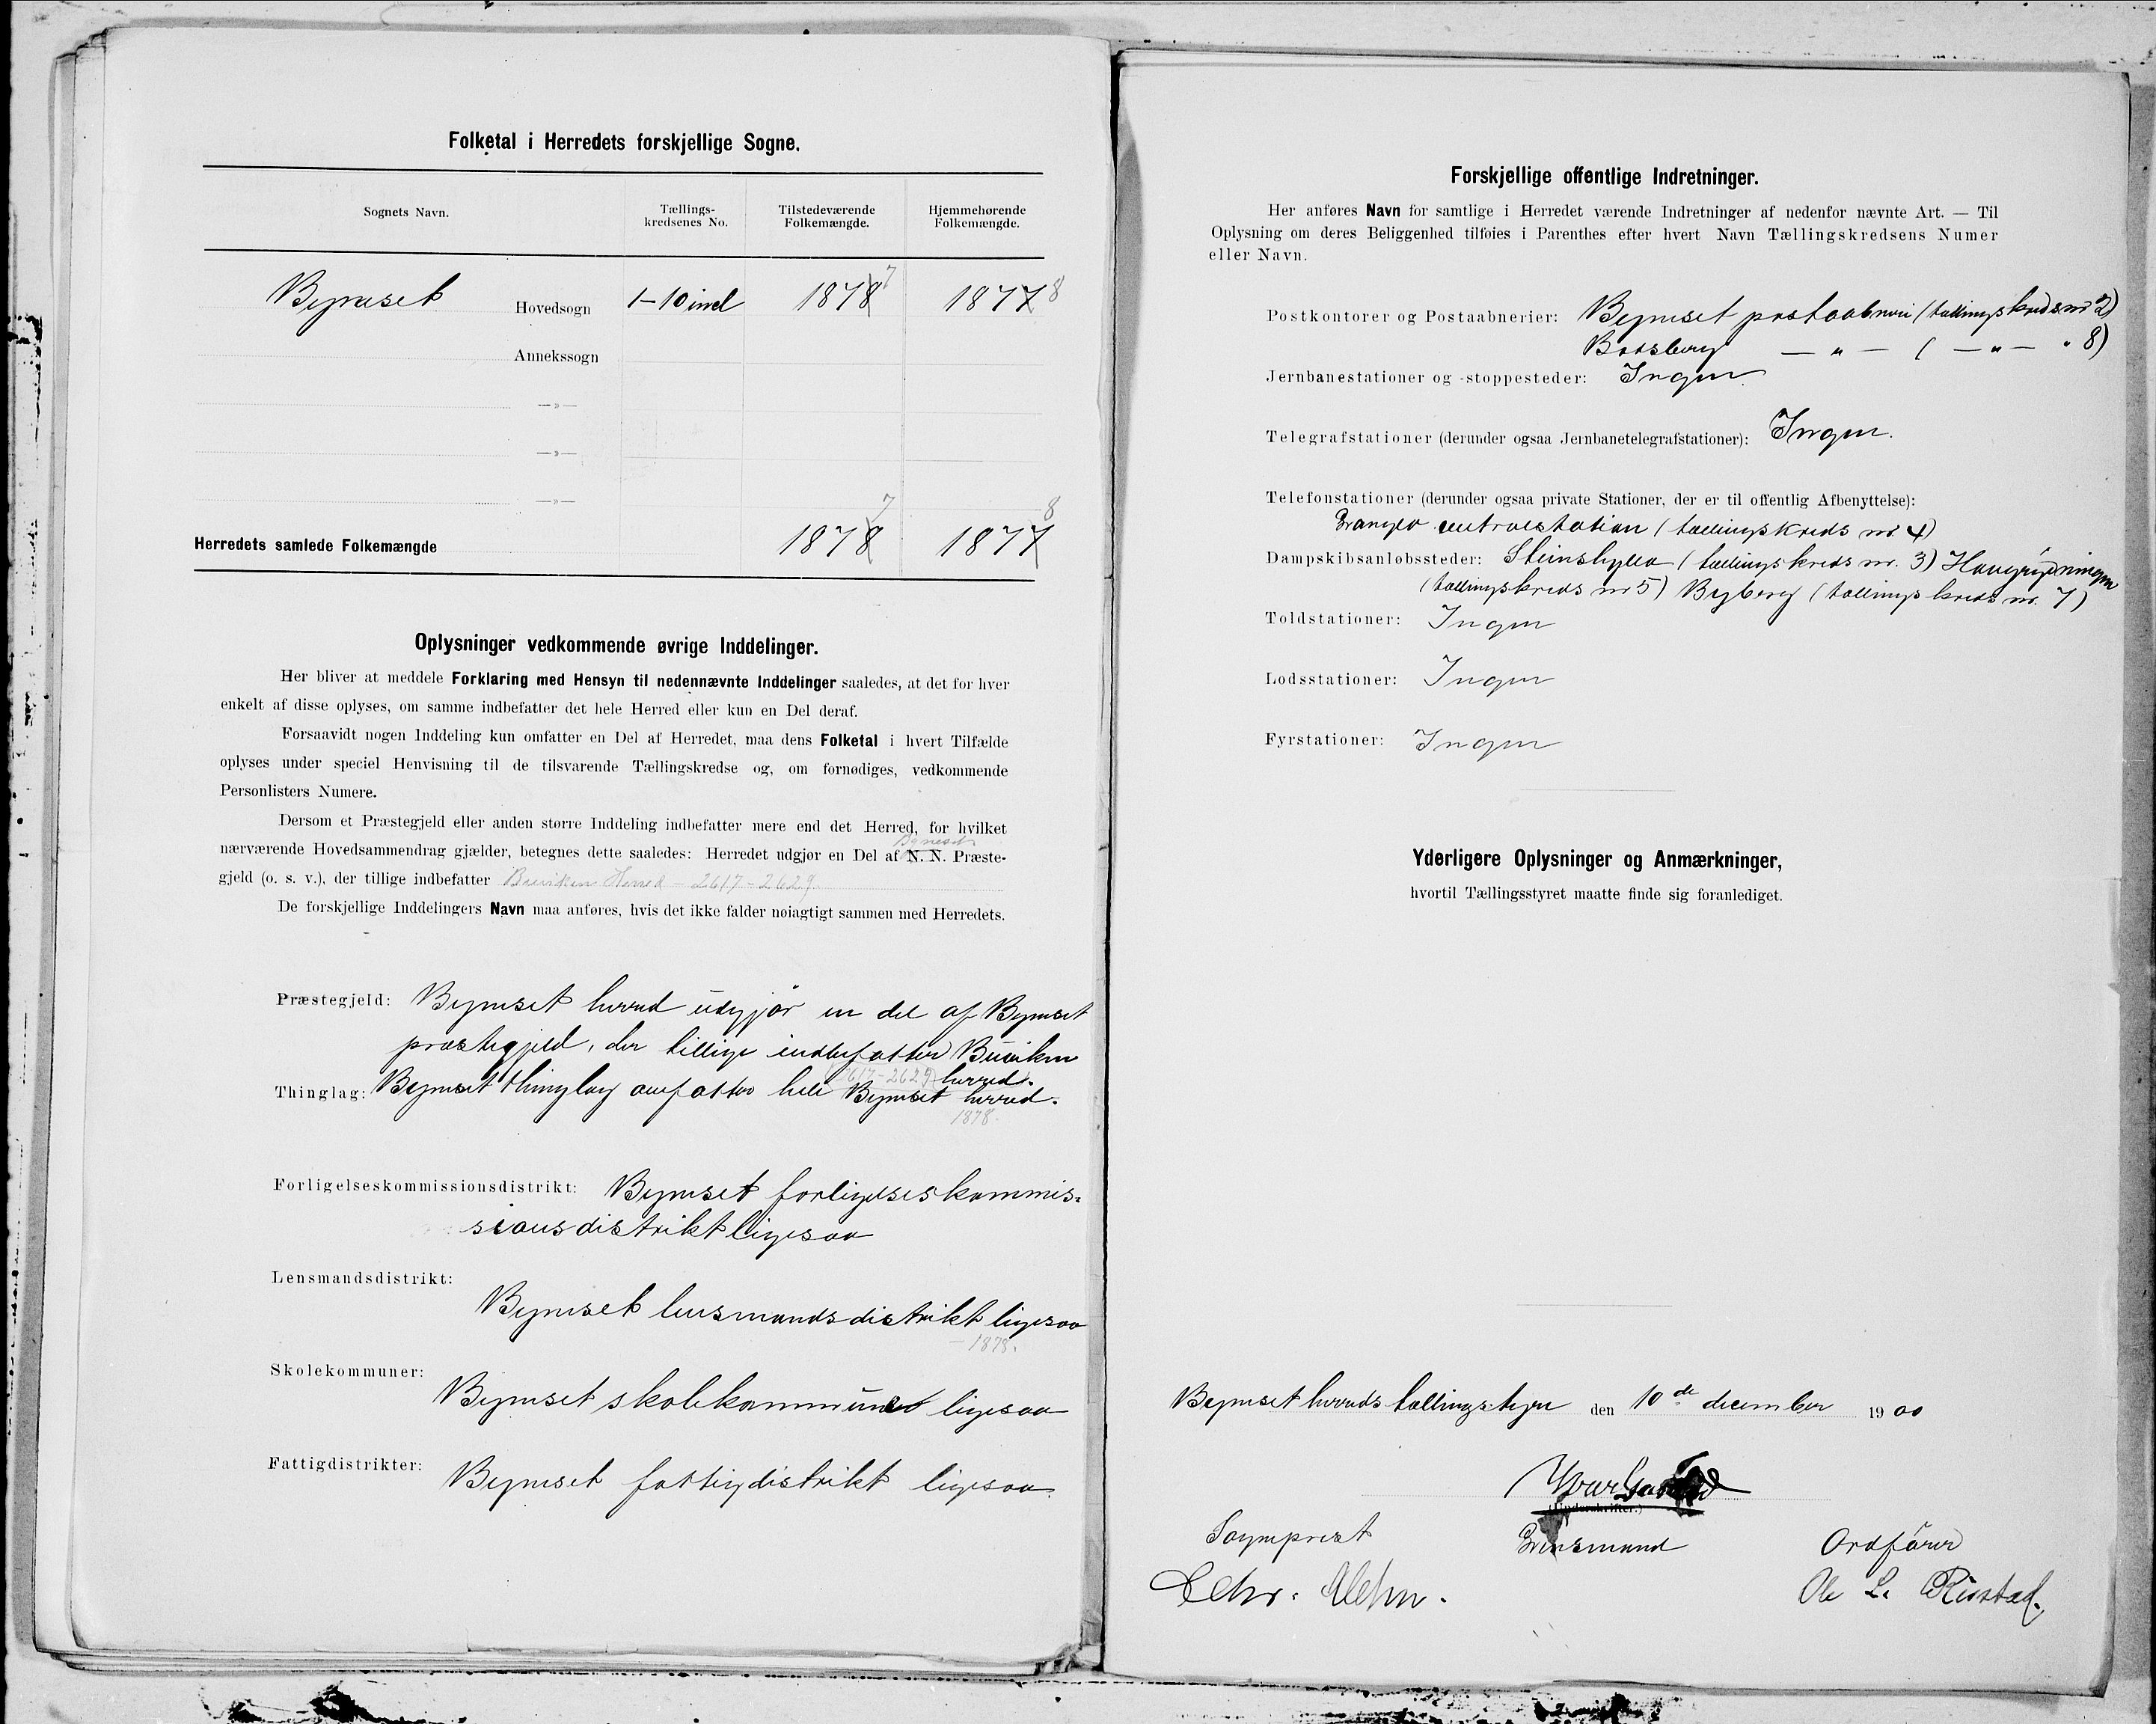 Folketal i Herredets forskjellige Sogne.
Sognets Navn.
Tællings-
kredsenes No.
Tilstedeværende
Folkemængde.
Hjemmehørende
Folkemængde.
Bynæset Hovedsogn 1-10 incl 1878 7 1877 8
Annekssogn
—»—
—»—
—»—
7 8
Herredets samlede Folkemængde 1878 1877
Oplysninger vedkommende øvrige Inddelinger.
Her bliver at meddele Forklaring med Hensyn til nedennævnte Inddelinger saaledes, at det for hver
enkelt af disse oplyses, om samme indbefatter det hele Herred eller kun en Del deraf.
Forsaavidt nogen Inddeling kun omfatter en Del af Herredet, maa dens Folketal i hvert Tilfælde
oplyses under speciel Henvisning til de tilsvarende Tællingskredse og, om fornødiges, vedkommende
Personlisters Numere.
Dersom et Præstegjeld eller anden større Inddeling indbefatter mere end det Herred, for hvilket
Bynæset
nærværende Hovedsammendrag gjælder, betegnes dette saaledes: Herredet udgjør en Del af N. N. Præste-
gjeld (o. s. v.), der tillige indbefatter Buviken Herred - 2617-2629.
De forskjellige Inddelingers Navn maa anføres, hvis det ikke falder nøiagtigt sammen med Herredets.
Præstegjeld: Bynæset herred udgjør en del af Bynæset
præstegjeld, der tillige indbefatter Buviken
2617-2629 herred.
Thinglag: Bynæset thinglag omfatter hele Bynæset herred.
1878.
Forligelseskommissionsdistrikt: Bynæset forligelseskommis=
sionsdistrikt ligesaa
Lensmandsdistrikt:
Bynæset lensmandsdistrikt ligesaa
- 1878.
Skolekommuner:
Bynæset skolekommune ligesaa
Fattigdistrikter:
Bynæset fattigdistrikt ligesaa
Forskjellige offentlige Indretninger.
Her anføres Navn for samtlige i Herredet værende Indretninger af nedenfor nævnte Art. — Til
Oplysning om deres Beliggenhed tilføies i Parenthes efter hvert Navn Tællingskredsens Numer
eller Navn.
Postkontorer og Postaabnerier: Bynæset postaabneri (tællingskreds nr 2)
Bosberg — " — ( — " — " 8)
Jernbanestationer og -stoppesteder: Ingen
Telegrafstationer (derunder ogsaa Jernbanetelegrafstationer): Ingen.
Telefonstationer (derunder ogsaa private Stationer, der er til offentlig Afbenyttelse):
centralstation (tællingskreds nr 4)
Dampskibsanløbssteder: Steinshylla (tællingskreds nr. 3) Haugrydningen
(tællingskreds nr 5) Byberg (tællingskreds nr. 7)
Toldstationer: Ingen
Lodsstationer: Ingen
Fyrstationer: Ingen
Yderligere Oplysninger og Anmærkninger,
hvortil Tællingsstyret maatte finde sig foranlediget.
Bynæset herreds tællingsstyre den 10de december 1900
Ivar
(Underskrifter.)
Sogneprest Lensmand Ordfører
Chr. Ole L. Ristad.